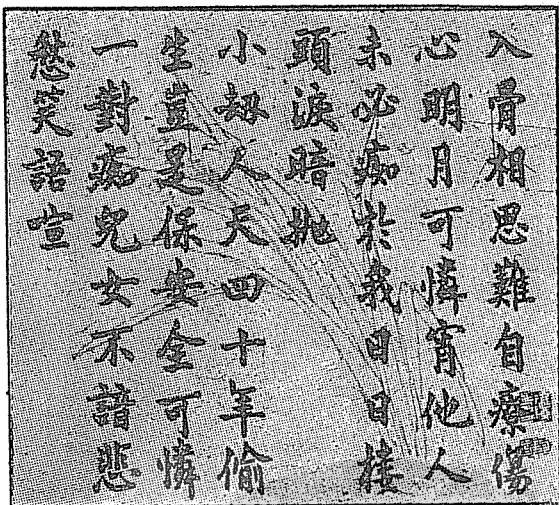 入骨相思難自療傷
心明月可憐宵他人
未必痴於我日日樓
頭淚暗拋
小刼人天四十年偷
生豈是保安全可憐
一對痴兒女不諳悲
愁笑語喧